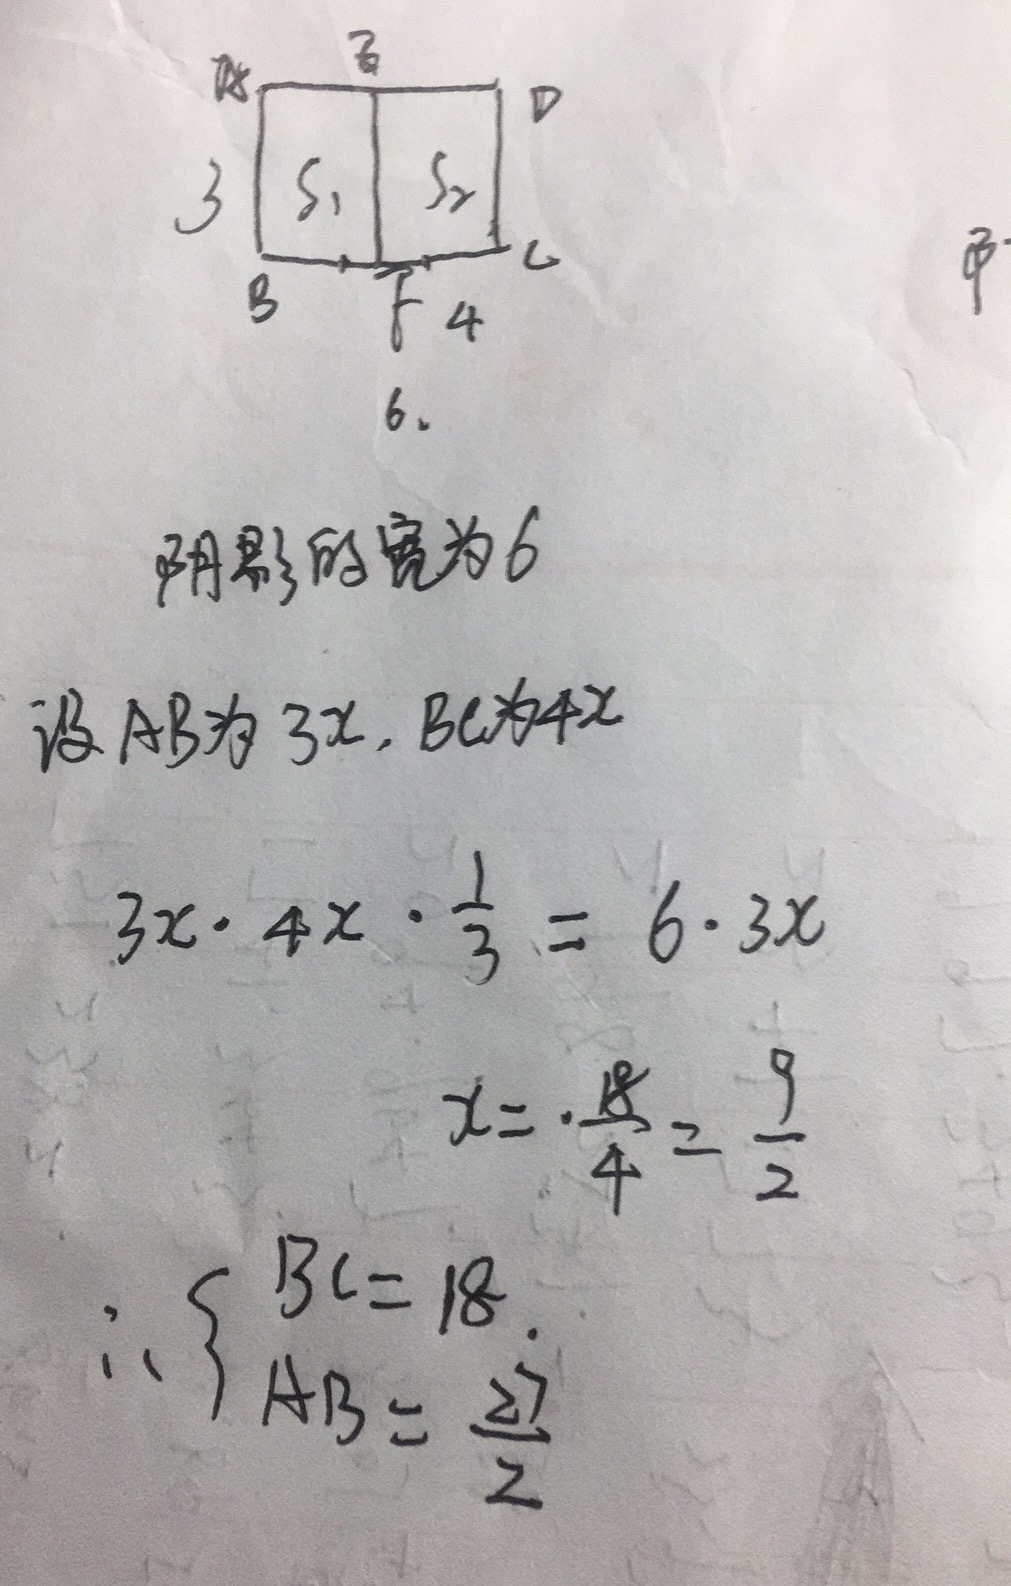 A E D
3 S₁ S₂
B F 4 C
6.
阴影的宽为6
设AB为3x, BC为4x
3x·4x·1/3 = 6·3x
x=·18/4=9/2
∴{BC=18.
AB=27/2